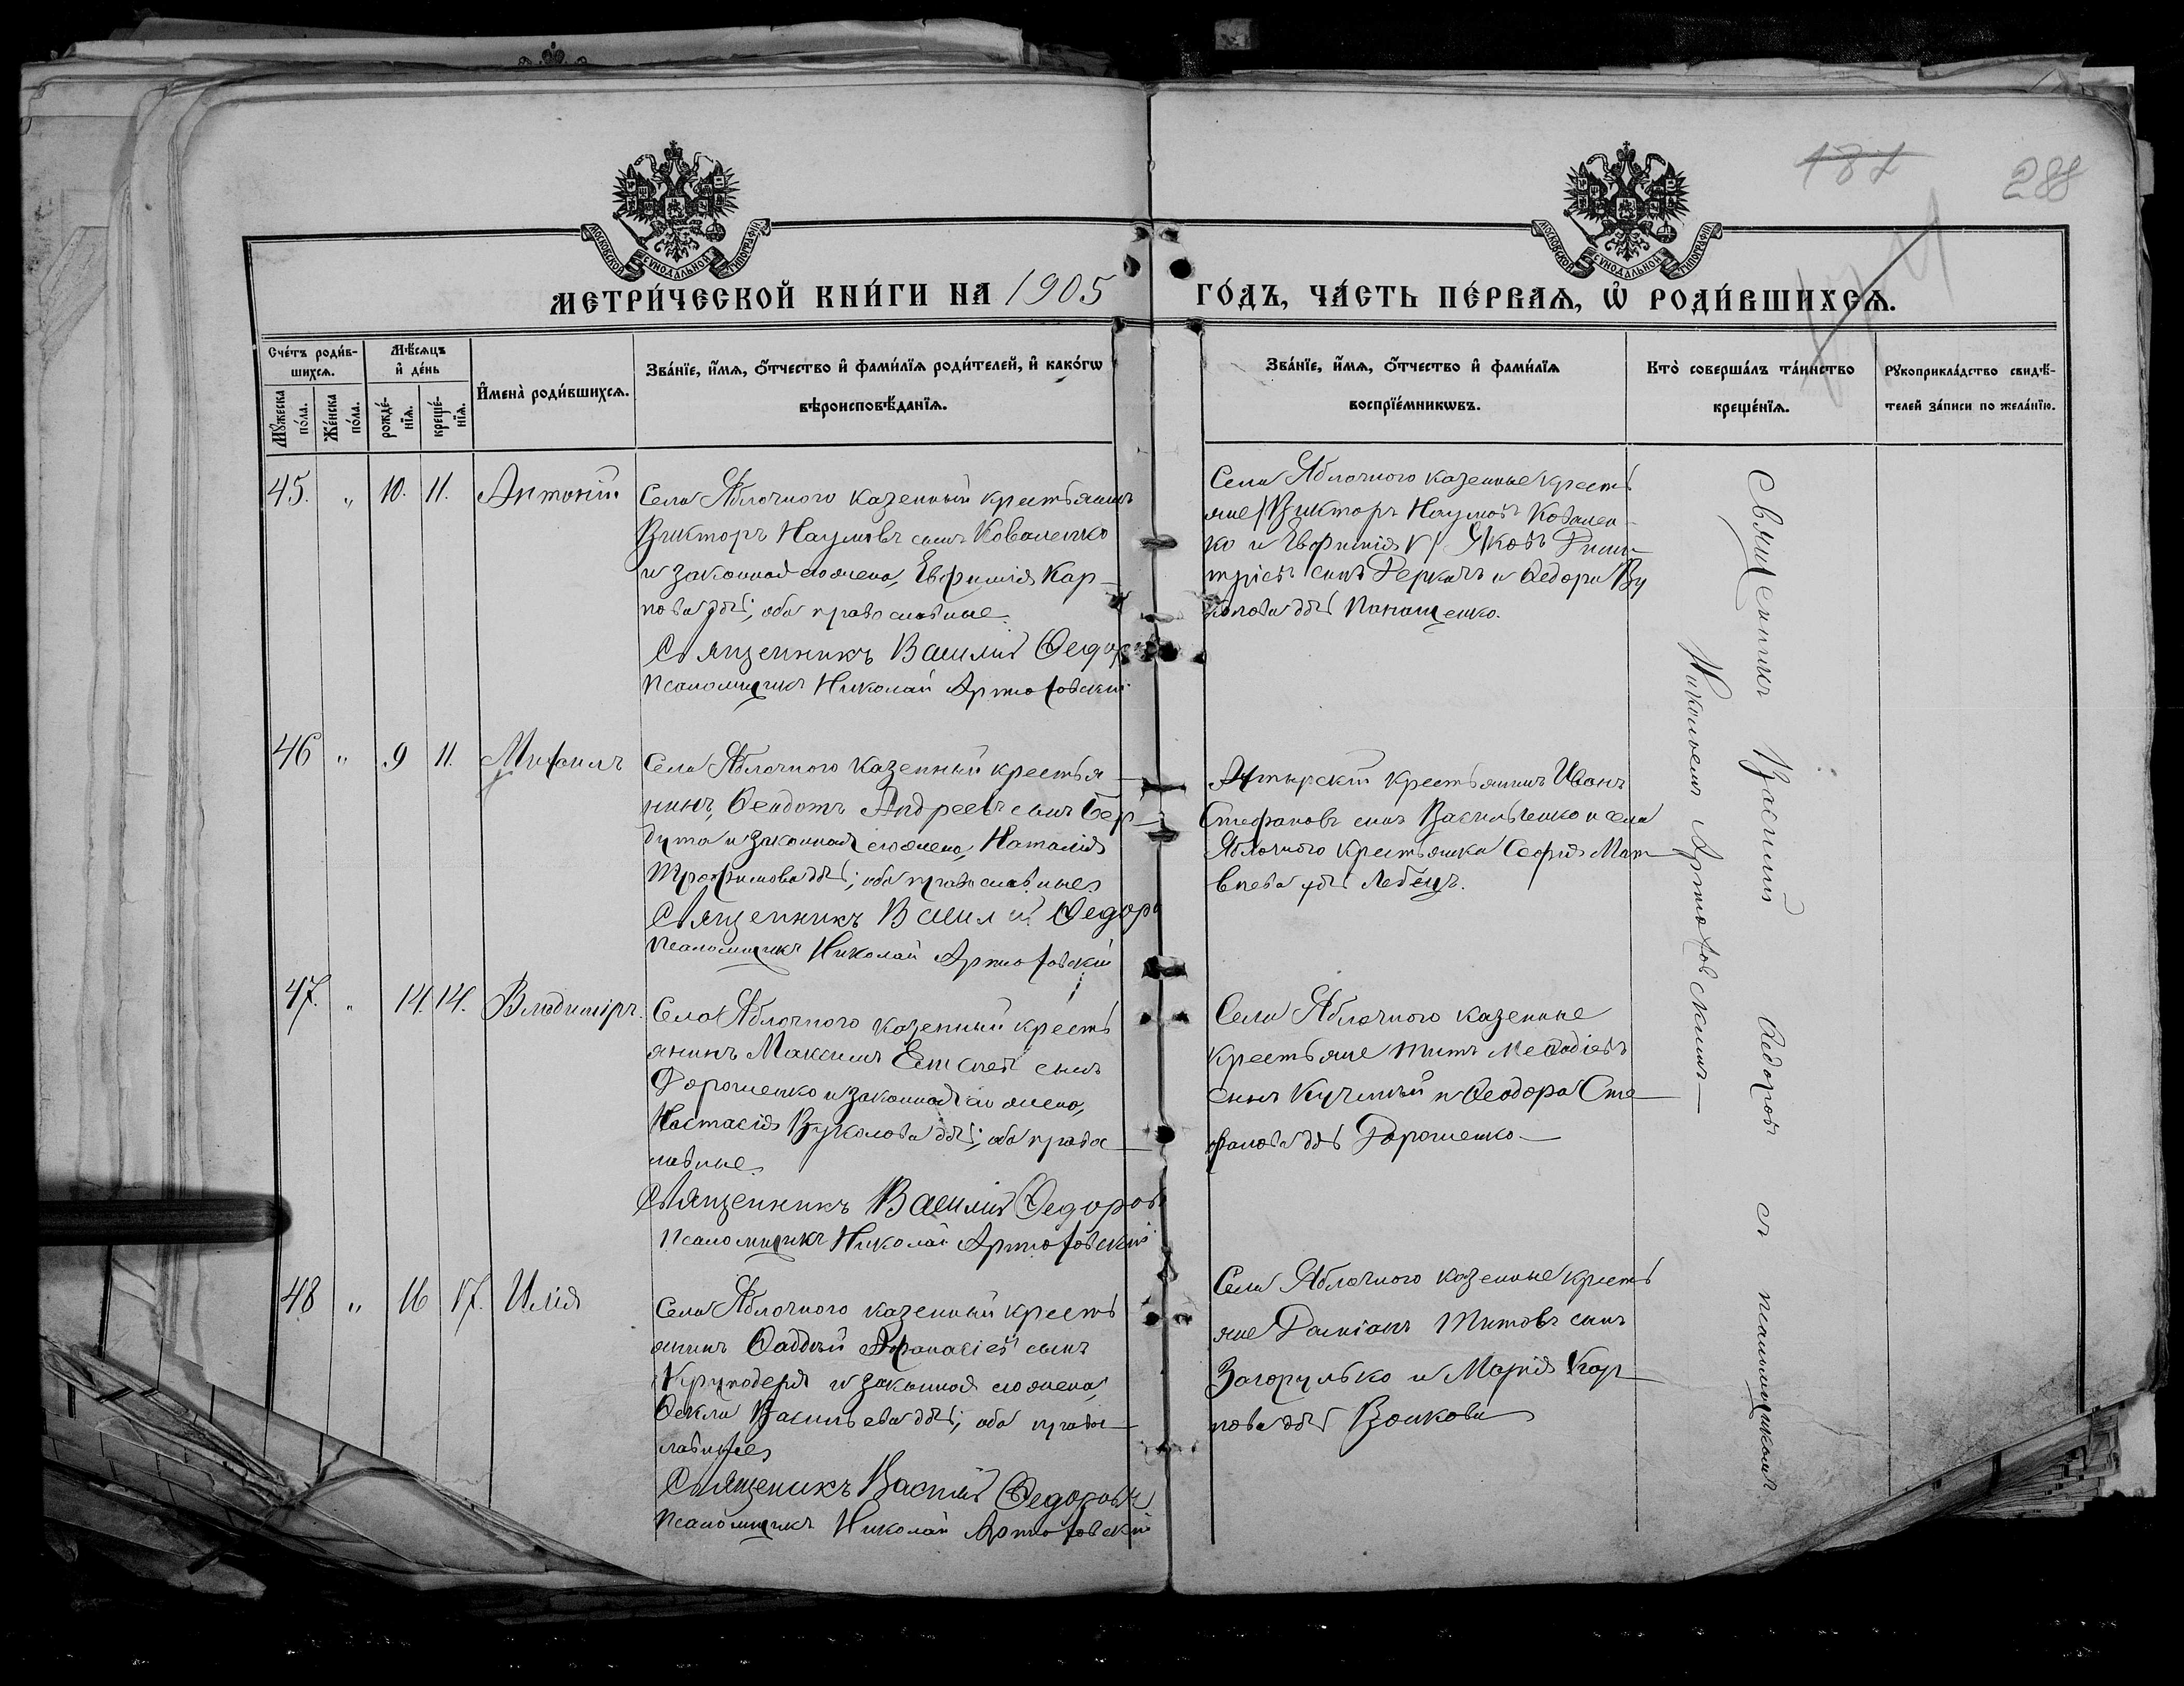 188
288
МОСКОВСКОЙ СѴНОДАЛЬНОЙ ТИПОГРАФІИ
МОСКОВСКОЙ СѴНОДАЛЬНОЙ ТИПОГРАФІИ
МЕТРИ́ЧЕСКОЙ КНИ́ГИ НА 1905
ГО́ДЪ, ЧА́СТЬ ПЕ́РВАѦ, Ѡ҆ РОДИ́ВШИХСѦ.
Сче́тъ роди́в-
шихсѧ.
Мꙋ́жеска
по́ла.
Же́нска
по́ла.
Мѣ́сѧцъ
и҆ де́нь
рожде́-
нїѧ.
креще́-
нїѧ.
И҆мена̀ роди́вшихсѧ.
Зва́нїе, и҆́мѧ, ѻ҆́тчество и҆ фами́лїѧ роди́телей, и҆ како́гѡ
вѣроисповѣ́данїѧ.
Зва́нїе, и҆́мѧ, ѻ҆́тчество и҆ фами́лїѧ
воспрїе́мникѡвъ.
Кто̀ соверша́лъ та́инство
креще́нїѧ.
Рꙋкоприкла́дство свидѣ́-
телей за́писи по жела́нїю.
45. " 10. 11. Антоній
Села Яблочного казенный крестьянинъ
Викторъ Наумовъ сынъ Коваленко
и законная его жена, Евфимія Кар-
пова дч; оба православные.
Священникъ Василій Федоровъ
Псаломщикъ Николай Артюховскій
Села Яблочного казенные кресть
яне Викторъ Наумовъ Ковален-
ко и Евфимія Яковъ Дими-
тріевъ сынъ Деркачъ и Ѳедора Ву
колова дч Панащенко.
46 " 9 11. Михаилъ
Села Яблочного казенный крестья-
нинъ, Ѳеодотъ Андреевъ сынъ Бер-
дута и законная его жена, Наталія
Трофимова дч; оба православные
Священникъ Василій Федоровъ
Псаломщикъ Николай Артюховскій
Ахтырскій крестьянинъ Иванъ
Стефановъ сынъ Васильченко и села
Яблочного крестьянка Софія Мат-
вѣева дч Лебедь.
47. " 14. 14. Владиміръ.
Села Яблочного казенный кресть
янинъ Максимъ сынъ
Дорошенко и законная его жена,
Настасія Вуколова дч; оба правос-
лавные.
Священникъ Василій Федоровъ
Псаломщикъ Николай Артюховскій
Села Яблочного казенные
крестьяне Титъ Меѳодіевъ
сынъ и Ѳеодора Сте-
фанова дч Дорошенко
48 " 16 17. Илія
Села Яблочного казенный кресть
янинъ Ѳаддей Афанасіев сынъ
Круподеря и законная его жена,
Ѳекла Васильева дч; оба правос-
лавные
Священикъ Василій Федоровъ
Псаломщикъ Николай Артюховскій
Села Яблочного казенные кресть
яне Даміанъ Титовъ сынъ
Загорулько и Марія Кар-
пова дч Волкова
Священникъ Василий Ѳедоровъ съ псаломщикомъ
Николаемъ Артюховскимъ